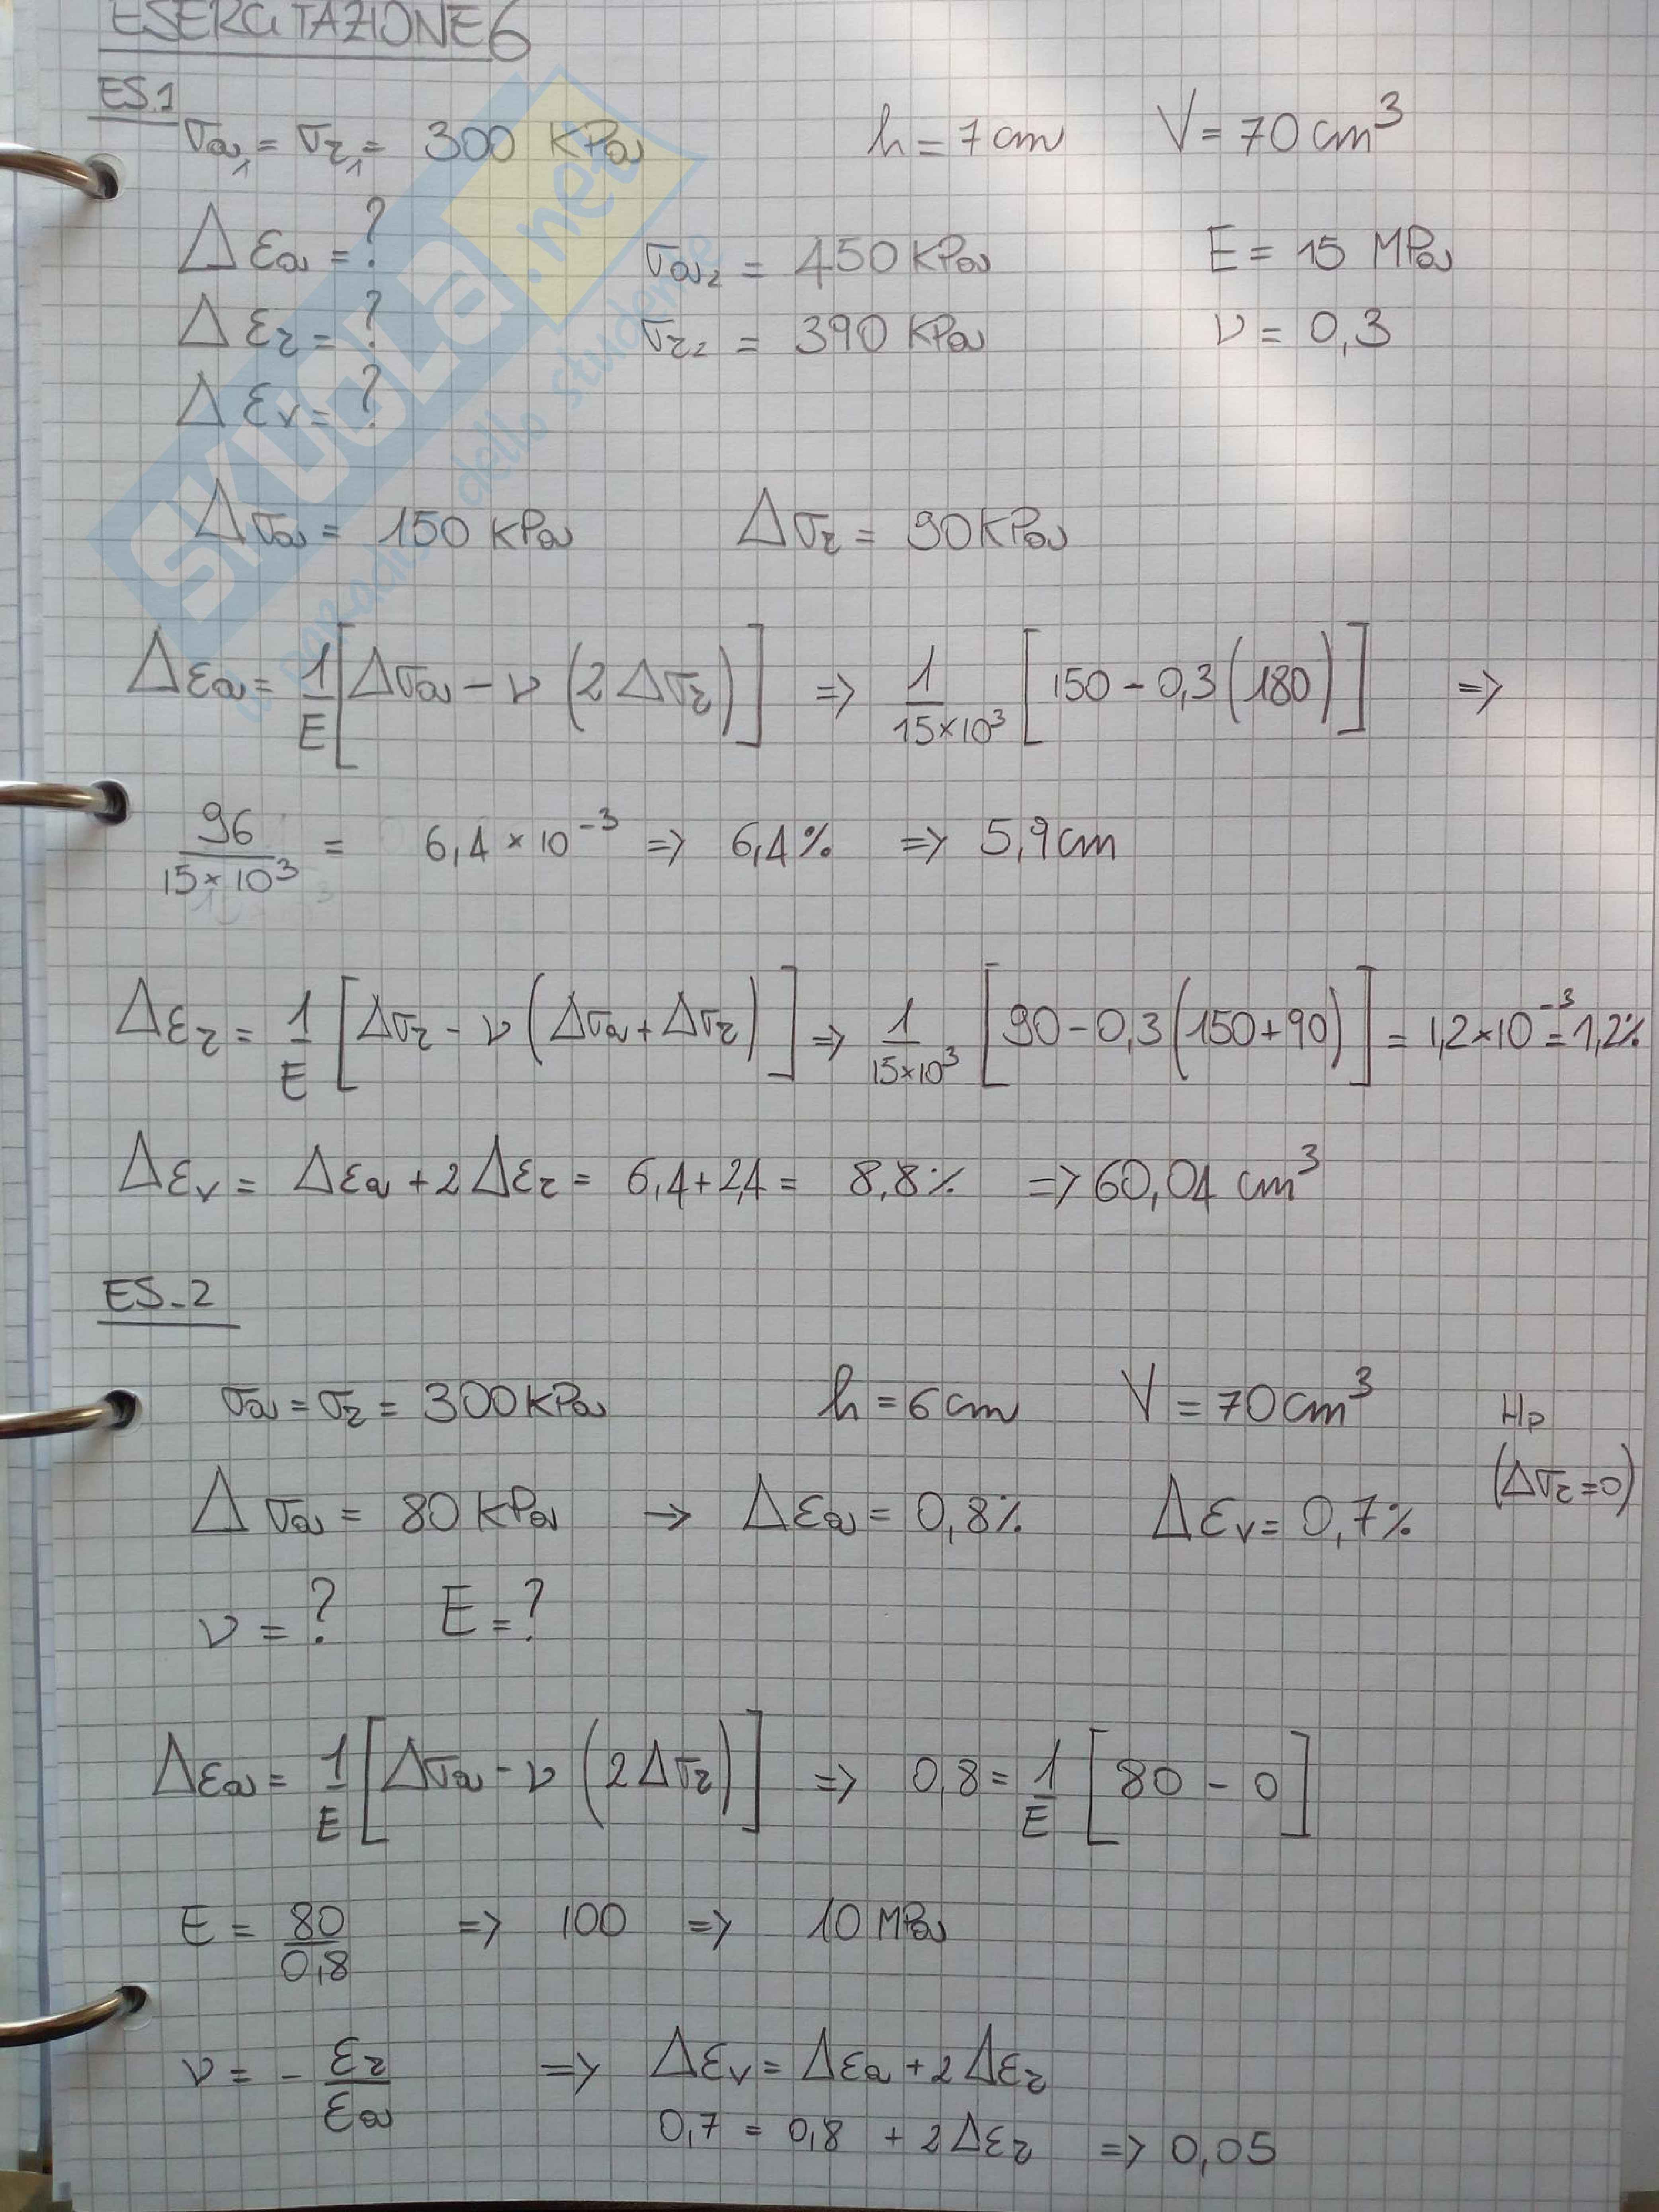 ESERCITAZIONE 6
ES.1
σa1 = σr1 = 300 KPa h = 7 cm V = 70 cm³
Δεa = ? σa2 = 450 KPa E = 15 MPa
Δεr = ? σr2 = 390 KPa ν = 0,3
Δεv = ?
Δσa = 150 KPa Δσr = 90 KPa
Δεa = 1/E [Δσa - ν (2Δσr)] => 1/15×10³ [150 - 0,3(180)] =>
96/15×10³ = 6,4 × 10⁻³ => 6,4% => 5,9 cm
Δεr = 1/E [Δσr - ν (Δσa + Δσr)] => 1/15×10³ [90 - 0,3(150+90)] = 1,2×10⁻³ = 1,2%
Δεv = Δεa + 2Δεr = 6,4 + 2,4 = 8,8% => 60,04 cm³
ES-2
σa = σr = 300 KPa h = 6 cm V = 70 cm³ Hp
(Δσr = 0)
Δσa = 80 KPa → Δεa = 0,8% Δεv = 0,7%
ν = ? E = ?
Δεa = 1/E [Δσa - ν (2Δσr)] => 0,8 = 1/E [80 - 0]
E = 80/0,8 => 100 => 10 MPa
ν = - εr/εa => Δεv = Δεa + 2Δεr
0,7 = 0,8 + 2Δεr => 0,05
SKUOLA.net
dello studente